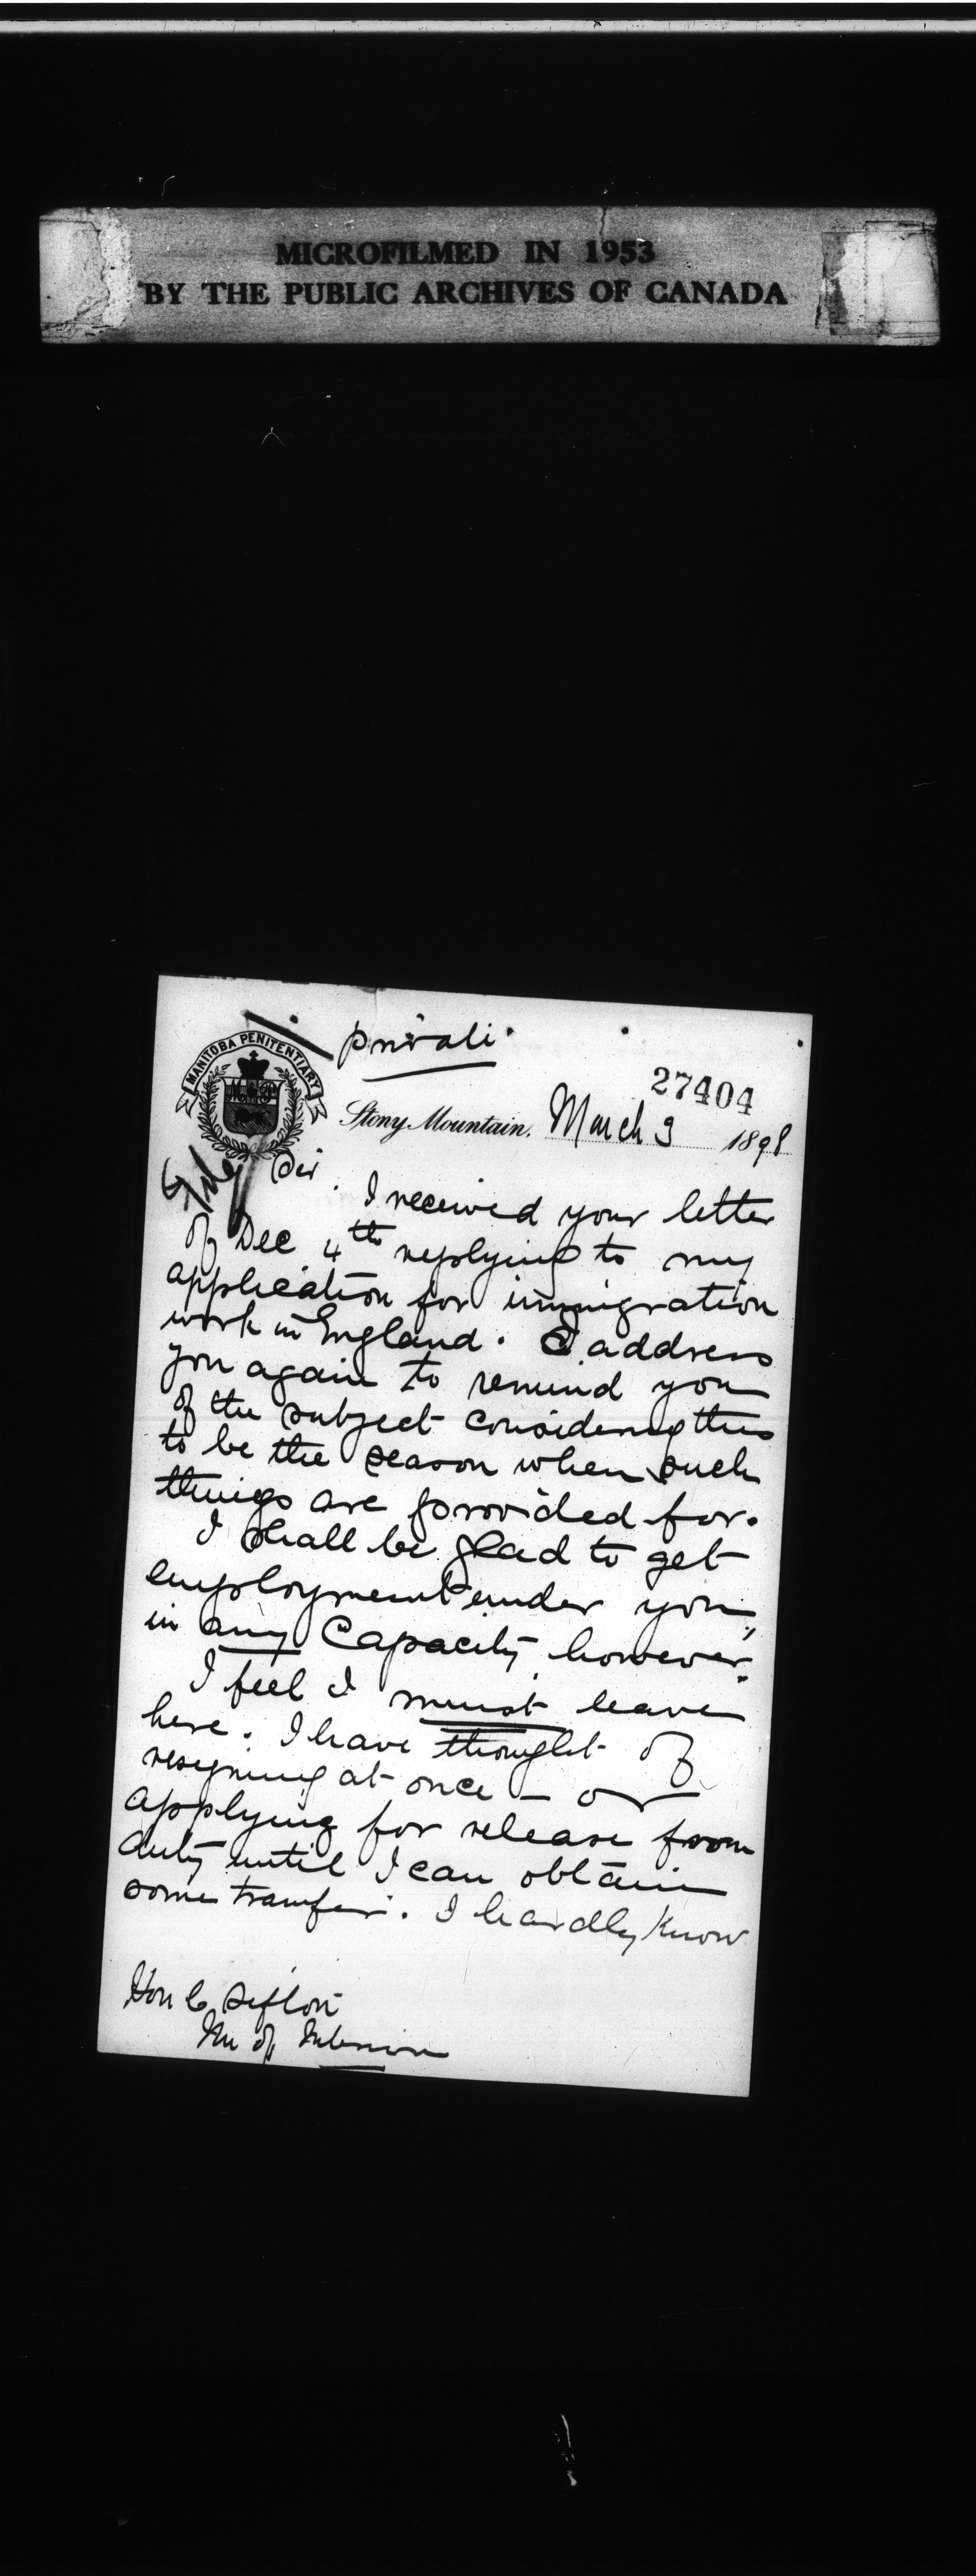 MICROFILMED IN 1953
BY THE PUBLIC ARCHIVES OF CANADA
Private
MANITOBA PENITENTIARY
27404
Stony Mountain, March 3 1898
Sir.
I received your letter
of Dec 4th replying to my
application for immigration
work in England. I address
you again to remind you
of the subject considering this
to be the season when such
things are provided for.
I shall be glad to get
employment under you
in any Capacity however.
I feel I must leave
here. I have thought of
resigning at once - or
applying for release from
duty until I can obtain
some transfer. I hardly know
Hon C Sifton
Min of Interior